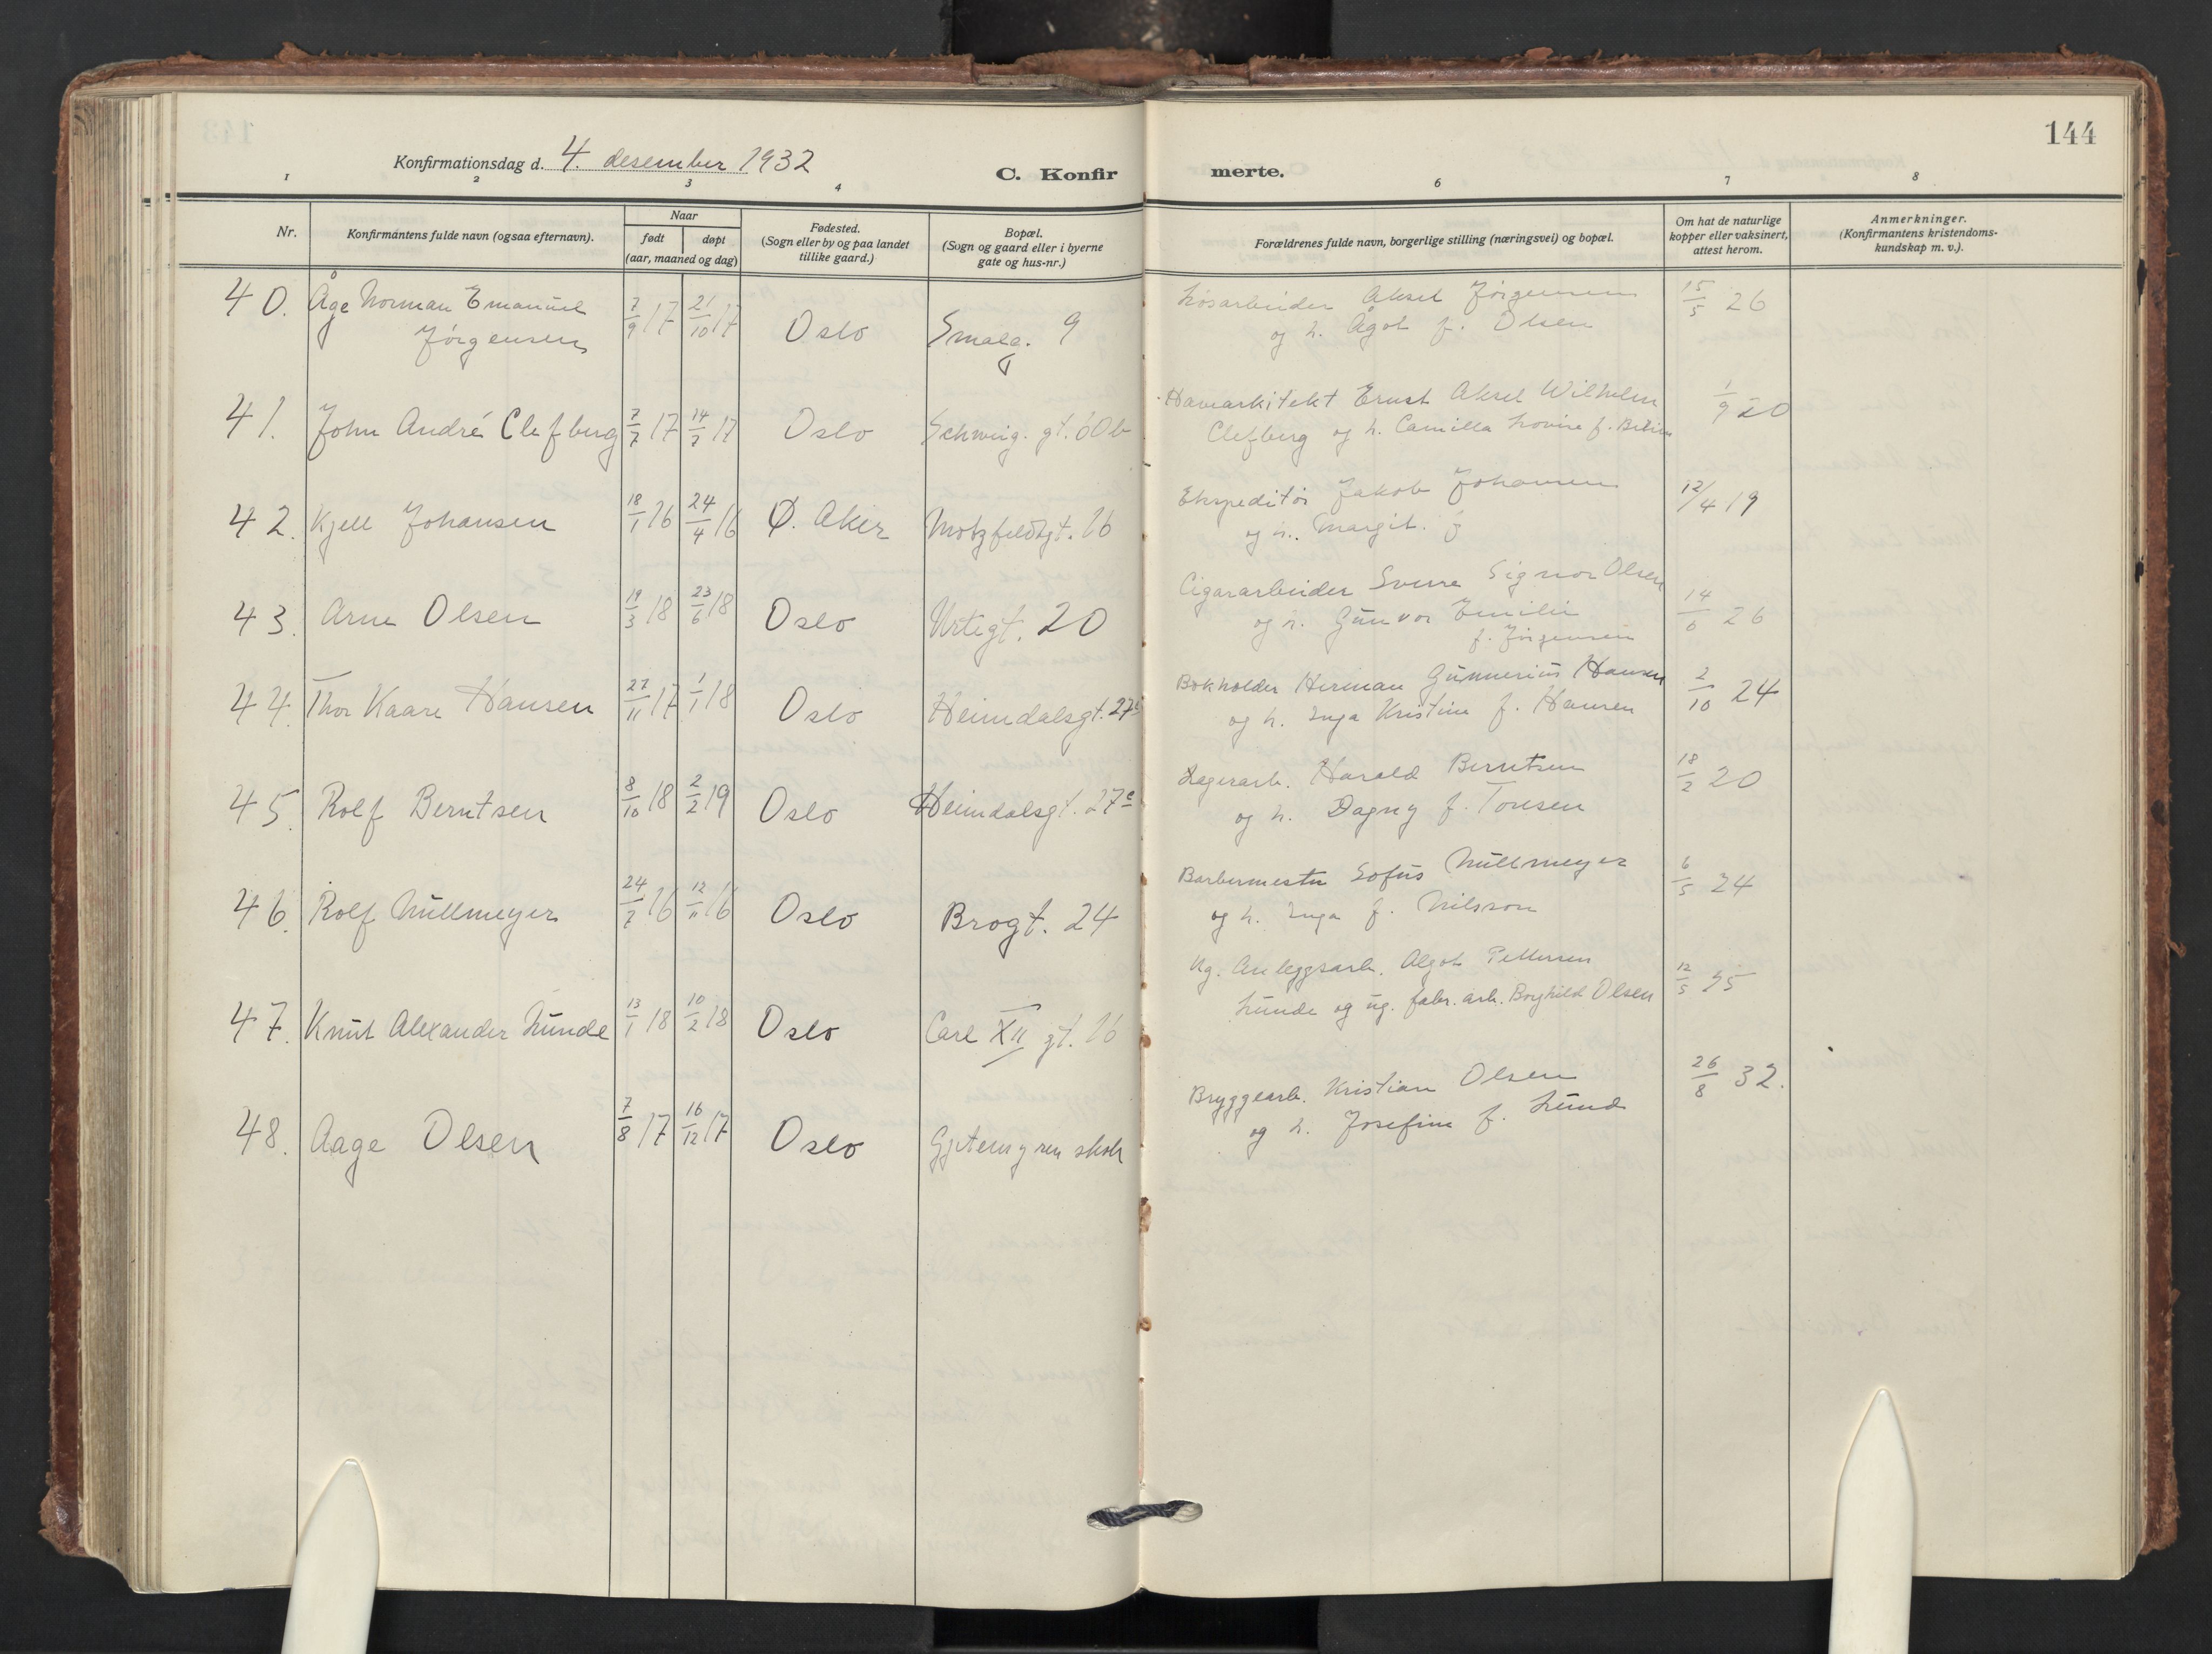 144
Konfirmationsdag d. 4. desember 1932
C. Konfir merte.
1 2 3 4 6 7 8
Nr.
Konfirmantens fulde navn (ogsaa efternavn).
Naar
født døpt
(aar, maaned og dag)
Fødested.
(Sogn eller by og paa landet
tillike gaard.)
Bopæl.
(Sogn og gaard eller i byerne
gate og hus-nr.)
Forældrenes fulde navn, borgerlige stilling (næringsvei) og bopæl.
Om hat de naturlige
kopper eller vaksinert,
attest herom.
Anmerkninger.
(Konfirmantens kristendoms-
kundskap m. v.).
40. Åge Norman Emanuel 7/9 17 21/10 17 Løsarbeider Aksel Jørgensen 15/5 26
Jørgensen Oslo Smalg. 9 og h. Ågot f. Olsen
41. John André Clefberg 7/7 17 14/7 17 Oslo Schweig. gt. 60b Havearkitekt Ernst Aksel Wilhelm 1/9 20
Clefberg og h. Camilla Lovise f.
42. Kjell Johansen 18/1 16 24/4 16 Ø. Aker Motzfeldtgt. 16 Ekspeditør Jakob Johansen 12/4 19
og h. Margit. f
43. Arne Olsen 19/3 18 23/6 18 Oslo Urtegt. 20 Cigararbeider Sverre Signor Olsen 14/6 26
og h. Gunvor Emilie
f. Jørgensen
44. Thor Kaare Hansen 27/11 17 1/1 18 Oslo Heimdalsgt. 27c Bokholder Herman Gunnerius Hansen 2/10 24
og h. Inga Kristine f. Hansen
45. Rolf Berntsen 8/10 18 2/2 19 Oslo Heimdalsgt. 27c Lagerarb. Harald Berntsen 18/2 20
og h. Dagny f. Tonsen
46. Rolf Nüllmeyer 24/7 16 12/11 16 Oslo Brogt. 24 Barbermester Sofus Nüllmeyer 6/5 24
og h. Inga f. Nilsson
47. Knut Alexander Lunde 13/1 18 10/2 18 Oslo Carl XII gt. 16 Ug. Anleggsarb. Algot Pettersen 12/5 25
Lunde og ug. fabr. arb. Borghild Olsen
48. Aage Olsen 7/8 17 16/12 17 Oslo Gjetemyren skole Bryggearb. Kristian Olsen 26/8 32.
og h. Josefine f. Lund